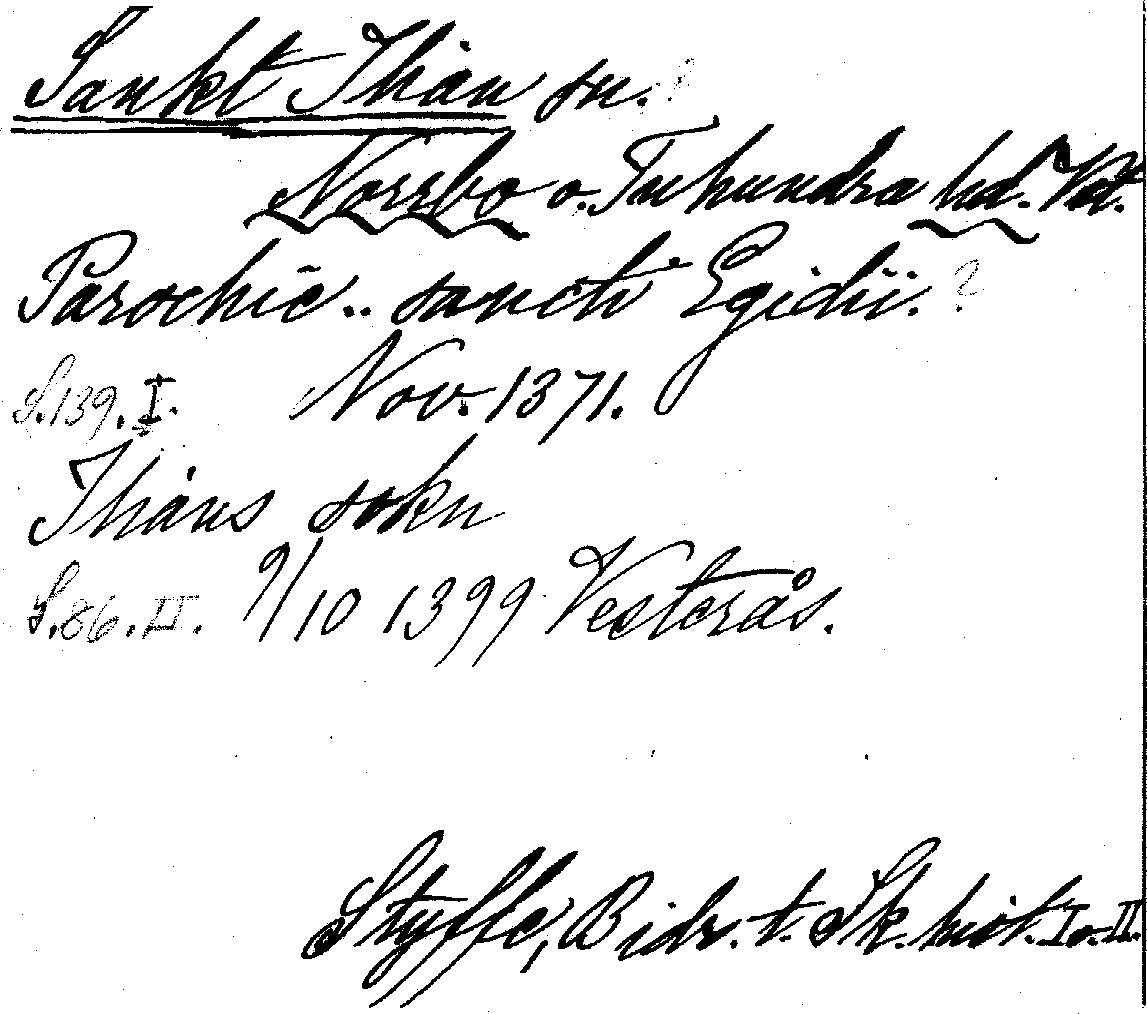 Sankt Ihan sn. ?
Norrbo o. Tuhundra hd. Vst.
Parochiē.. sancti Egidii. ?
S.139. I. Nov. 1371.
Ihåns sokn
S.86. II. 9/10 1399 Vesterås.
Styffe, Bidr. t. Sk. hist. I o. II.